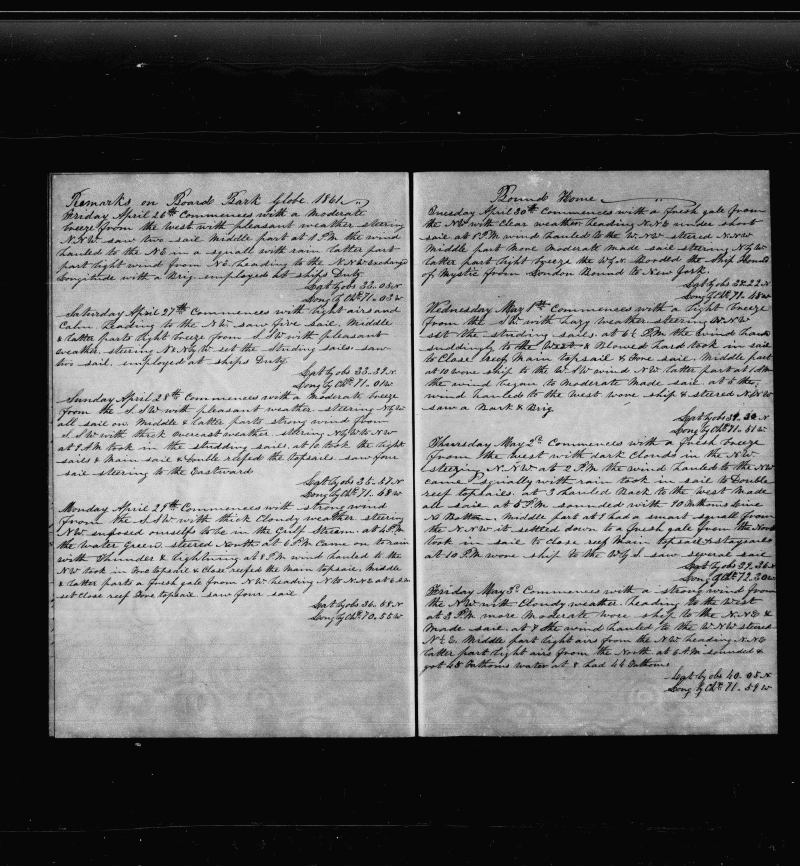 Remarks on Board Bark Globe 1861
Friday April 26th Commences with a moderate
breeze from the West with pleasant weather steering
N.N.W saw two sail Middle part at 1 P.M the wind
hauled to the NE in a squall with rain latter part
part light wind from NE heading to the NNW exchanged
Longitude with a Brig employed at ships Duty
Lat by obs 33.03 N
Long by Chr 71.03 W
Saturday April 27th Commences with light airs and
Calm heading to the NW saw five sail, Middle
& latter parts light breeze from SSW with pleasant
weather, steering N & NbyW set the studing sails saw
two sail employed at ships Duty
Lat by obs 33.39 N
Long by Chr 71.01 W
Sunday April 28th Commences with a moderate breeze
from the S.SW with pleasant weather steering NbyW
all sail on Middle & latter parts strong wind from
S.SW with thick overcast weather steering NbyW & NW
at 9 AM took in the studding sails at 10 took in the light
sails & Main sail & Double reefed the topsails saw four
sail steering to the Eastward
Lat by obs 35.57 N
Long by Chr 71.48 W
Monday April 29th Commences with strong wind
from the S.SW with thick Cloudy weather steering
NW suposed ourselfs to be in the Gulf Stream at 4 PM
the water Green steered North at 6 PM Came on to rain
with Thunder & lightning at 8 PM wind hauled to the
NW took in Fore topsail & Close reefed the Main topsail Middle
& latter parts a fresh gale from NW heading
set close reef Fore topsail saw four sail
Lat by obs 36.58 N
Long by Chr 70.55 W
Bound Home
Tuesday April 30th Commences with a fresh gale from
the NW with Clear weather heading N.NE under short
sail at 5 PM wind hauled to the W.NW steered N.NW
Middle part More Moderate made sail steering NbyW
latter part light breeze the WbyN. Boarded the Ship Hound
of Mystic from London Bound to New York.
Lat by obs 37.22 N
Long by Chr 71.48 W
Wednesday May 1st Commences with a light breeze
from the SW with hazy weather steering N.NW
set the studing sails at 6½ PM the wind hauled
suddenly to the West & Blowed hard took in sail
to Close reef Main topsail & Fore sail. Middle part
at 10 wore ship to the W.SW wind NW latter part at 1 AM
the wind began to Moderate Made sail at 5 the
wind hauled to the West wore ship & steered NbyW
saw a Bark & Brig
Lat by obs 39.30 N
Long by Chr 71.41 W
Thursday May 2d Commences with a fresh breeze
from the West with dark Clouds in the NW
steering N.NW at 2 PM the wind hauled to the NW
came squally with rain took in sail to Double
reef topsails. at 3 hauled Back to the West Made
all sail at 5 PM sounded with 90 Fathoms Line
No Bottom. Middle part at 9 had a smart squall from
the N.NW it settled down to a fresh gale from the North
took in sail to close reef Main topsail & staysails
at 10 PM wore ship to the WbyS saw several sail
Lat by obs 39.36 N
Long by Chr 72.20 W
Friday May 3d Commences with a strong wind from
the NW with Cloudy weather heading to the West
at 3 PM more Moderate wore ship to the N.NE &
Made sail. at 7 the wind hauled to the W.NW steered
N½E. Middle part light airs from the NW heading N.NE
latter part light airs from the North at 6 AM sounded &
got 45 Fathoms water at 8 had 44 Fathoms
Lat by obs 40.05 N
Long by Chr 71.59 W